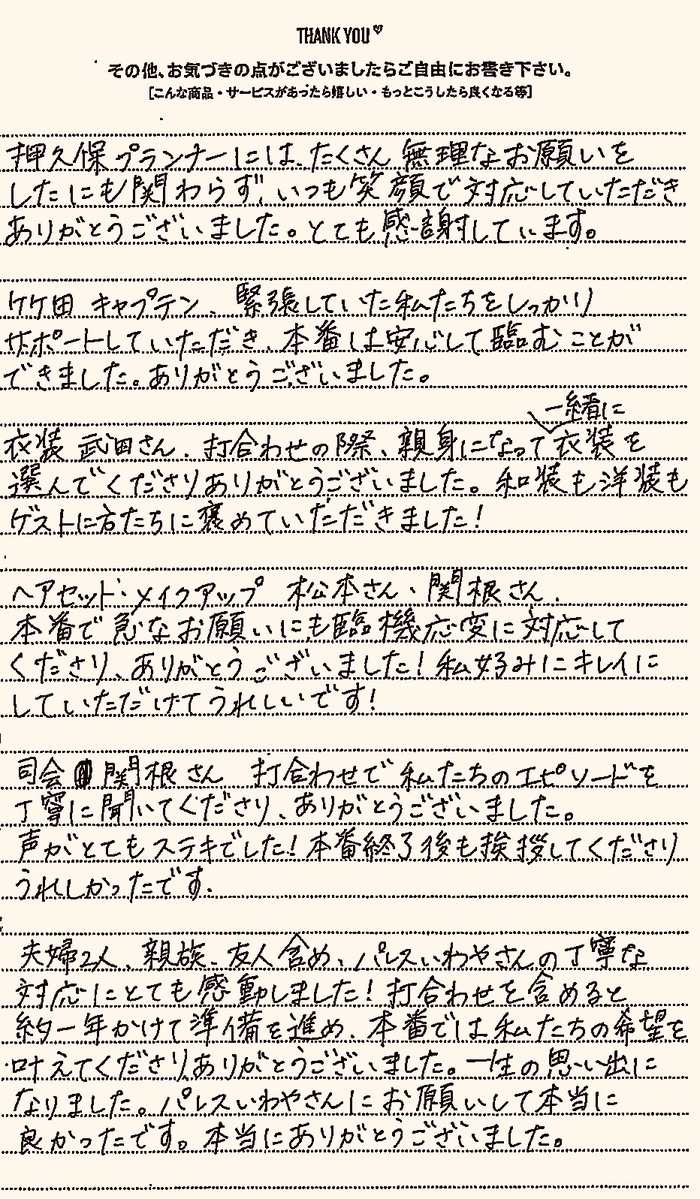 THANK YOU♥
その他、お気づきの点がございましたらご自由にお書き下さい。
[こんな商品・サービスがあったら嬉しい・もっとこうしたら良くなる等]
押久保プランナーには、たくさん無理なお願いを
したにも関わらず、いつも笑顔で対応していただき
ありがとうございました。とても感謝しています。
竹田 キャプテン、緊張していた私たちをしっかり
サポートしていただき、本番は安心して臨むことが
できました。ありがとうございました。
一緒に
衣装 武田さん、打合わせの際、親身になって衣装を
選んでくださりありがとうございました。和装も洋装も
ゲストに方たちに褒めていただきました!
ヘアセット・メイクアップ 松本さん、関根さん、
本番で急なお願いにも臨機応変に対応して
くださり、ありがとうございました!私好みにキレイに
していただけてうれしいです!
司会 関根さん 打合わせで私たちのエピソードを
丁寧に聞いてくださり、ありがとうございました。
声がとてもステキでした!本番終了後も挨拶してくださり
うれしかったです。
夫婦2人、親族、友人含め、パレスいわやさんの丁寧な
対応にとても感動しました!打合わせを含めると
約一年かけて準備を進め、本番では私たちの希望を
叶えてくださりありがとうございました。一生の思い出に
なりました。パレスいわやさんにお願いして本当に
良かったです。本当にありがとうございました。